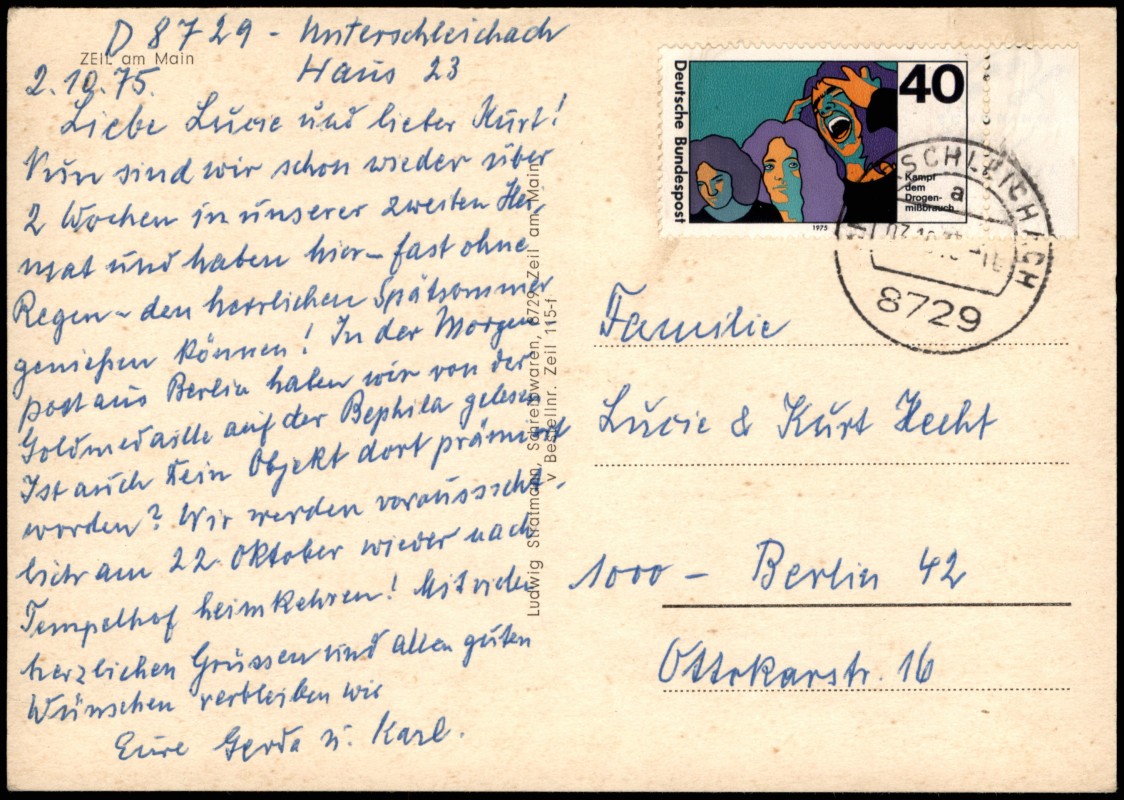 D 8729 - Unterschleichach
ZEIL am Main
2.10.75. Haus 23
Liebe Lucie und lieber Kurt!
Nun sind wir schon wieder über
2 Wochen in unserer zweiten Hei-
mat und haben hier - fast ohne
Regen - den herrlichen Spätsommer
genießen können! In der Morgen
post aus Berlin haben wir von der
Goldmedaille auf der Bephila gelesen
Ist auch Dein Objekt dort prämiert
worden? Wir werden voraussicht-
lich am 22. Oktober wieder nach
Tempelhof heimkehren! Mit vielen
herzlichen Grüssen und allen guten
Wünschen verbleiben wir
Eure Gerda u. Karl.
Ludwig Stratmann, Schreibwaren, 8729 Zeil am Main
V Bestellnr. Zeil 115-f
Deutsche Bundespost
40
Kampf
dem
Drogen-
mißbrauch
1975
SCHLEICHACH
a
8729
Familie
Lucie & Kurt Hecht
1000 - Berlin 42
Ottokarstr. 16